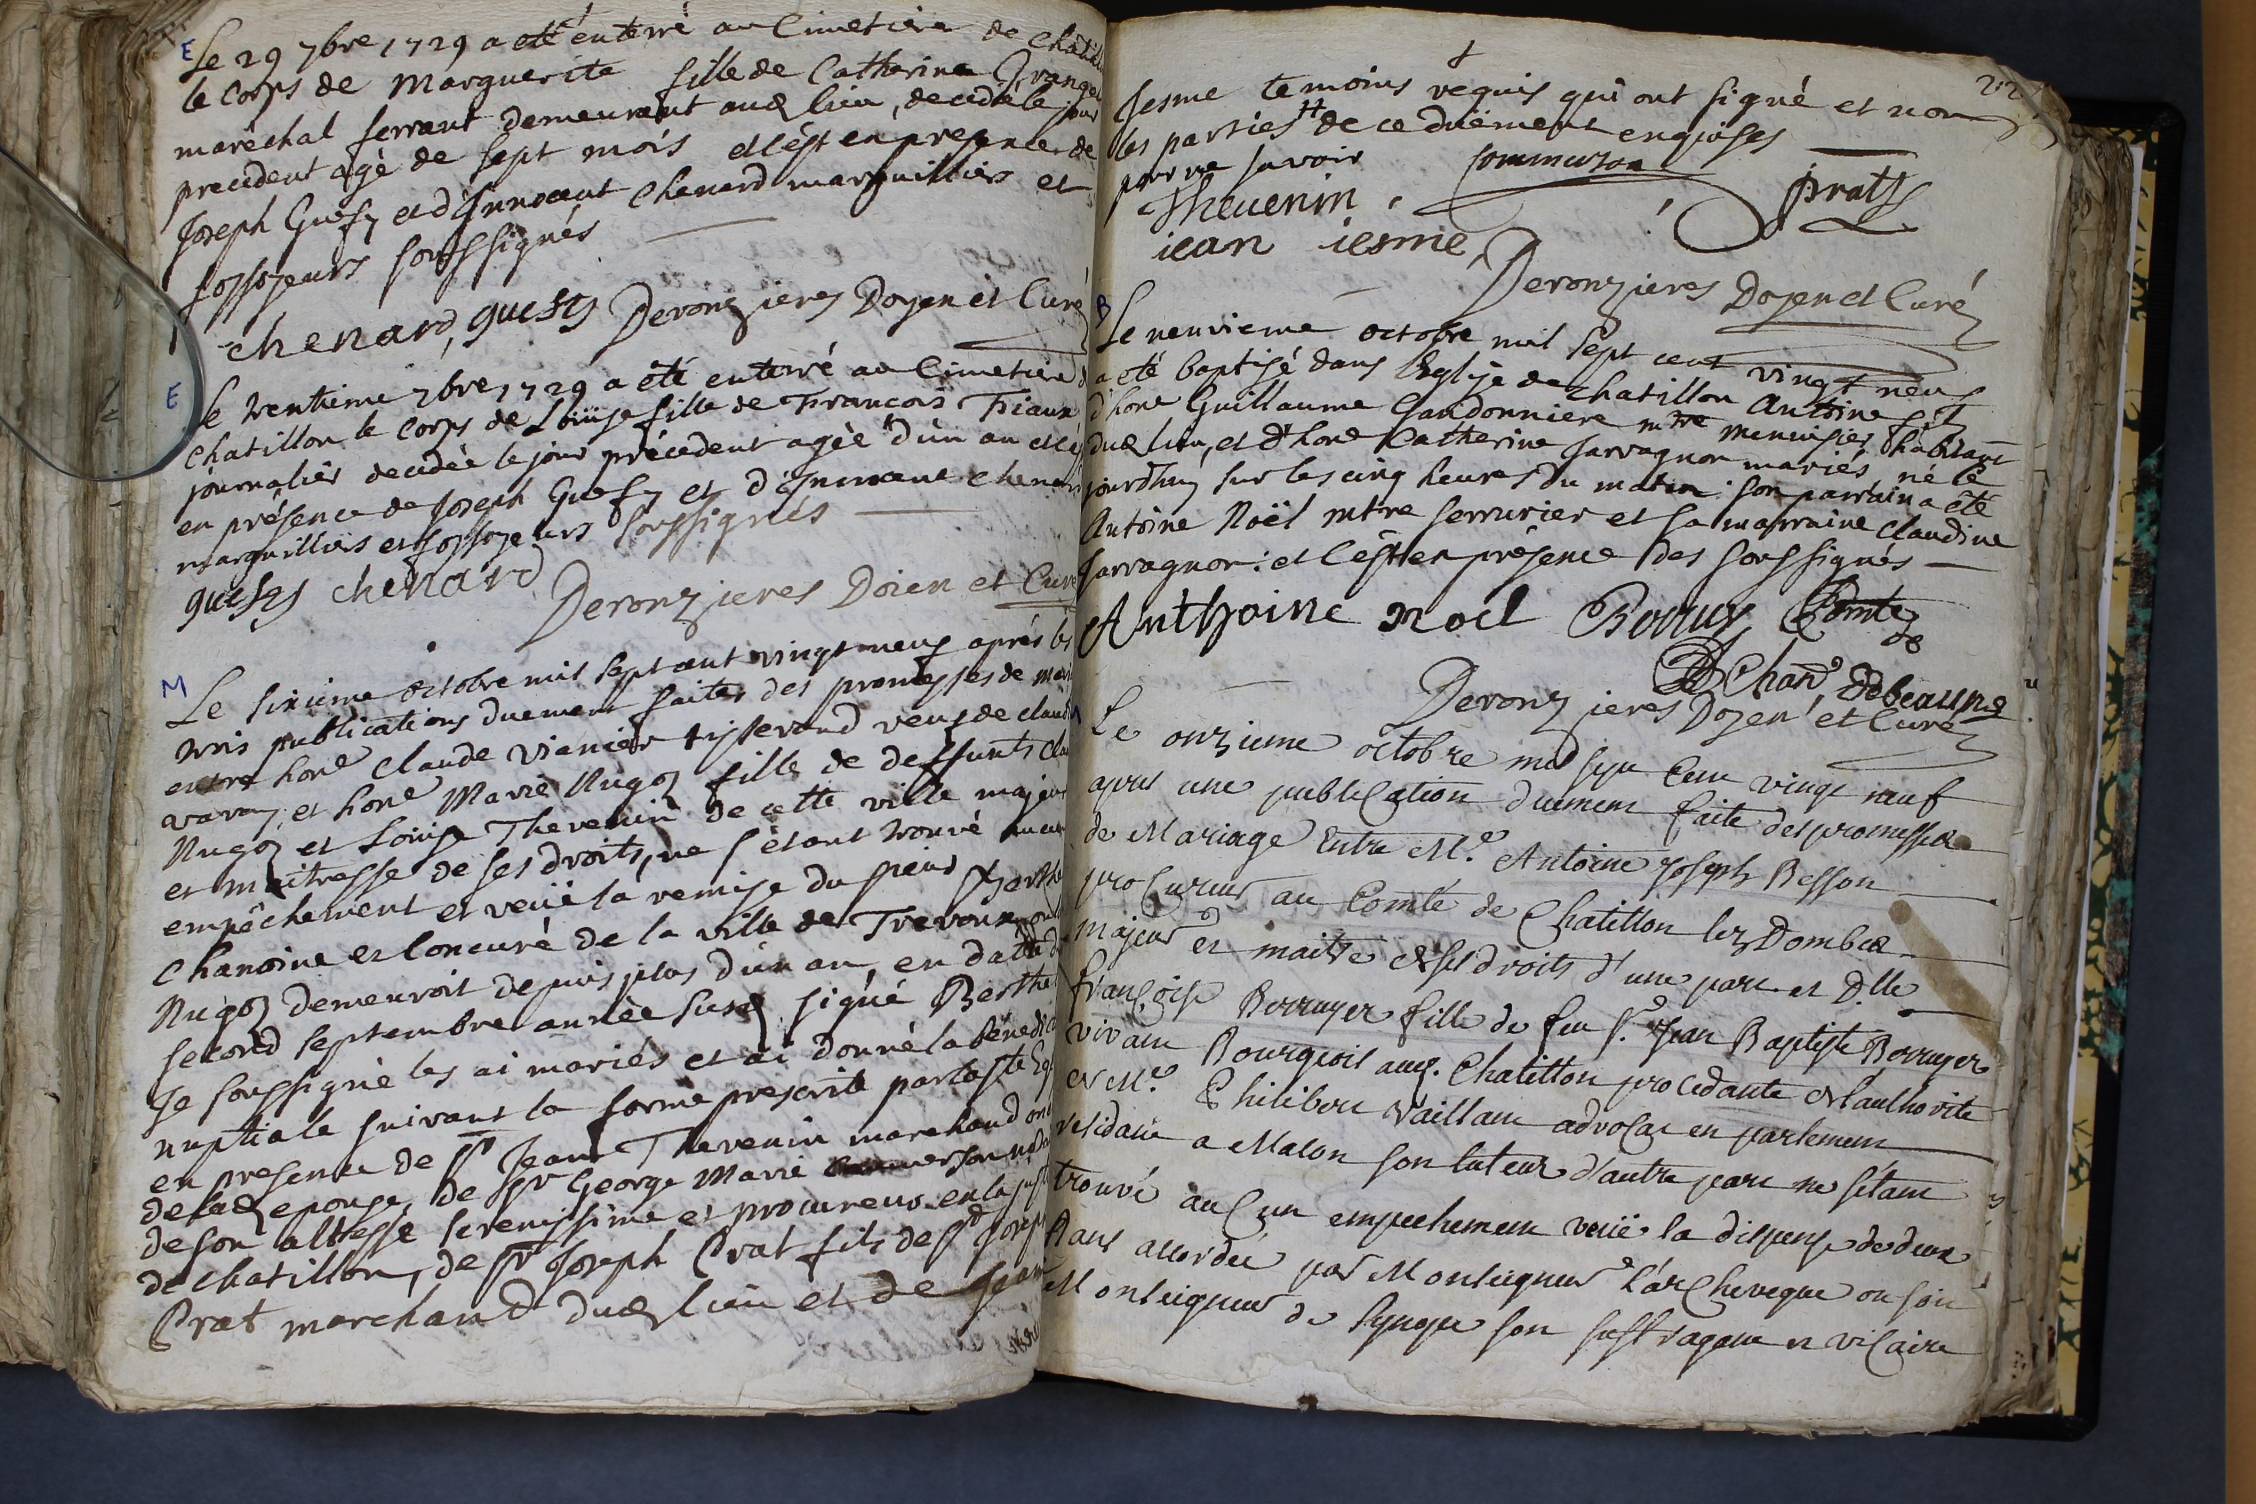 E Le 29 7bre 1729 a eté enterré au Cimetiere de chatill
le Corps de Marguerite fille de Catherine Grange
maréchal ferrant demeurant audt lieu, decedée le jour
precedent agé de sept mois et c'est en presence de
Joseph Guesy et d'Innocent Chenard marguilliers et
fossoyeurs soussignés
chenard, guesy Deronzieres Doyen et Curé
E le trentieme 7bre 1729 a été enterré au Cimetiere d
chatillon le Corps de Loüise fille de Francois Tiaun
journalier decedée le jour précedent agée d'un an et c'es
en présence de Joseph Guesy et d'Innocent chenard
marguilliers et fossoyeurs soussignés
guesy chenard
Deronzieres Doien et Curé
M Le sixième octobre mil sept cent vingt neuf aprés les
trois publications duement faites des promesses de mari
entre hone Claude Vianier tisserand veuf de claud
varay, et hone Marie Nugoz fille de deffunts Clau
Nugoz et Loüise Thevenin de cette ville majeure
et maitresse de ses droits, ne s'étant trouvé aucun
empêchement et veüe la remise du sieur Berthe
Chanoine et Concuré de la ville de Trevoux ou la
Nugoz demeuroit depuis plus d'un an, en datte du
second septembre année susd. signé Berthe
Je soussigné les ai mariés et ai donné la bénédic
nuptiale suivant la forme prescrite par la Ste Egl
en presence de sr Jean Thevenin marchand oncle
de lad. epouse, de sr George Marie Commerson not
de son altesse serenissime et procureur en la just
de chatillon, de sr Joseph Prat fils de sr Joseph
Prat marchand dudt lieu et de Jean
212
Jesme temoins requis qui ont signé et non
les parties de ce duement enquises
pour ne savoir
Thevenin Commerson Prat
jean jesme
Deronzieres Doyen et Curé
B Le neuvieme octobre mil sept cent vingt neuf
a été baptisé dans l'Eglise de chatillon Antoine fils
d'hone Guillaume Gandonniere mtre menuisier habitant
dudt lieu, et d'hone Catherine Sarvagnon mariés né le
jourd'huy sur les cinq heures du matin: son parrain a été
Antoine Noël mtre serrurier et sa marraine Claudine
Sarragnon: et c'est en présence des soussignés
Anthoine noel Borruy Comte
de
Chan. debeaune
Deronzieres Doyen et Curé
M Le onzieme octobre mil sept Cent vingt neuf
apres une publication duement faite des promesses
de Mariage Entre Me. Antoine Joseph Besson
procureur au Comté de Chatillon lez Dombes
majeur et maitre de ses droits d'une part et Dlle
françoise Borruyer fille de feu sr. Jean Baptiste Borruyer
vivant Bourgeois aud. Chatillon procedante de l'authorité
de Me. Philibert Vaillant advocat en parlement
residant a Macon son tuteur d'autre part ne s'étant
trouvé aucun empechement veüe la dispense de deux
bans accordée par Monseigneur l'archeveque ou soit
Monseigneur de Synope son suffragant et vicaire